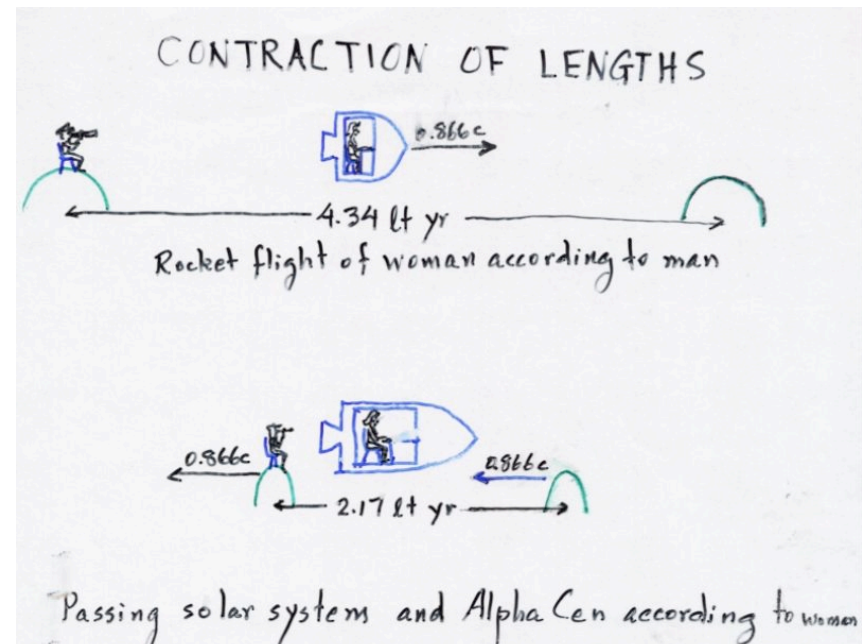 CONTRACTION OF LENGTHS
0.866c
4.34 lt yr
Rocket flight of woman according to man
0.866c
0.866c
2.17 lt yr
Passing solar system and Alpha Cen according to woman